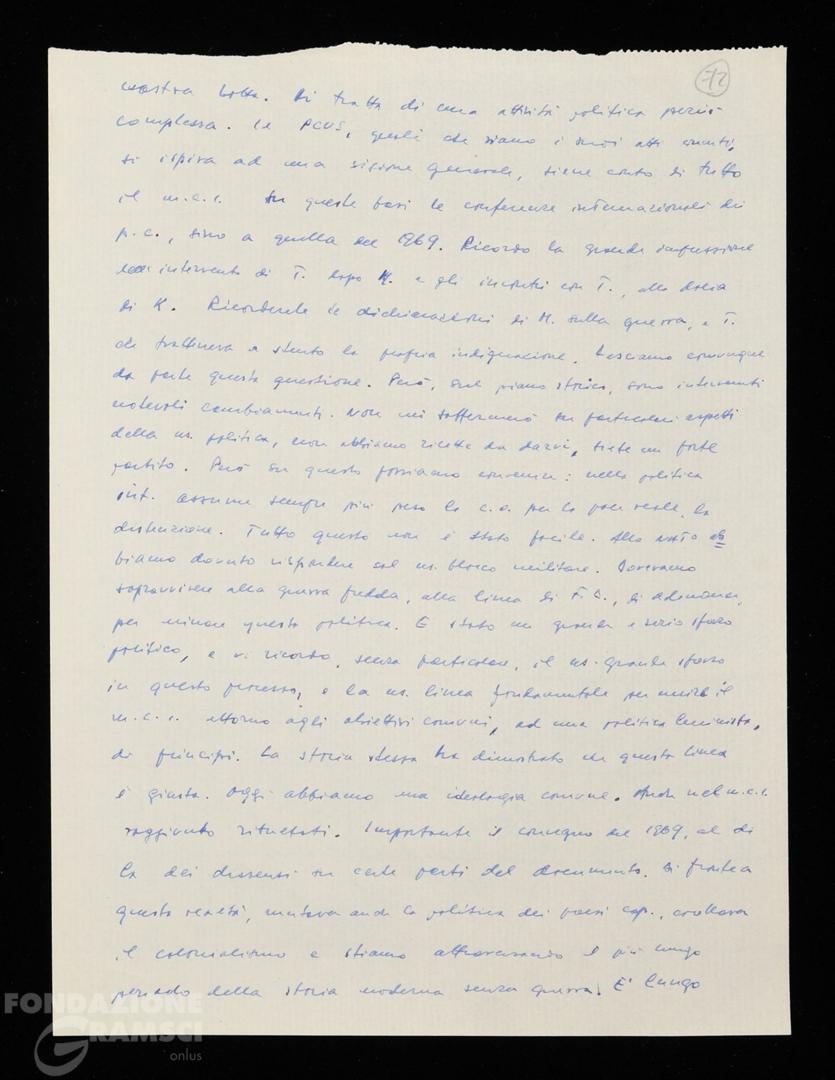 12
nostra lotta. Si tratta di una attività politica perciò
complessa. Il PCUS, quali che siano i suoi atti concreti,
si ispira ad una visione generale, tiene conto di tutto
il m.c.i. Su queste basi le conferenze internazionali dei
p.c., sino a quella del 1969. Ricordo la grande impressione
intervento di T. dopo K. e gli incontri con T., alla dacia
di K. Ricorderete le dichiarazioni di M. sulla guerra, e T.
che tratteneva a stento la propria indignazione. Lasciamo comunque
da parte questa questione. Però, sul piano storico, sono intervenuti
notevoli cambiamenti. Non mi soffermerò su particolari aspetti
della ns. politica, non abbiamo ricette da darvi, siete un forte
partito. Però su questo possiamo convenire: nella politica
int. assume sempre più peso la c.s. per la pace reale, la
distensione. Tutto questo non è stato facile. Alla NATO ab
biamo dovuto rispondere col ns. blocco militare. Dovevamo
sopravvivere alla guerra fredda, alla linea di F.D., di Adenauer,
per minare questa politica. È stato un grande e serio sforzo
politico, e vi ricordo, senza particolari, il ns. grande sforzo
in questo processo, e la ns. linea fondamentale per unire il
m.c.i. attorno agli obiettivi comuni, ad una politica leninista,
di principi. La storia stessa ha dimostrato che questa linea
è giusta. Oggi abbiamo una ideologia comune. Anche nel m.c.i.
raggiunto risultati. Importante il convegno del 1969, al di
là dei dissensi su certe parti del documento. Di fronte a
questa realtà, mutava anche la politica dei paesi cap., crollava
il colonialismo e stiamo attraversando il più lungo
periodo della storia moderna senza guerra. E' lungo
FONDAZIONE
GRAMSCI
onlus